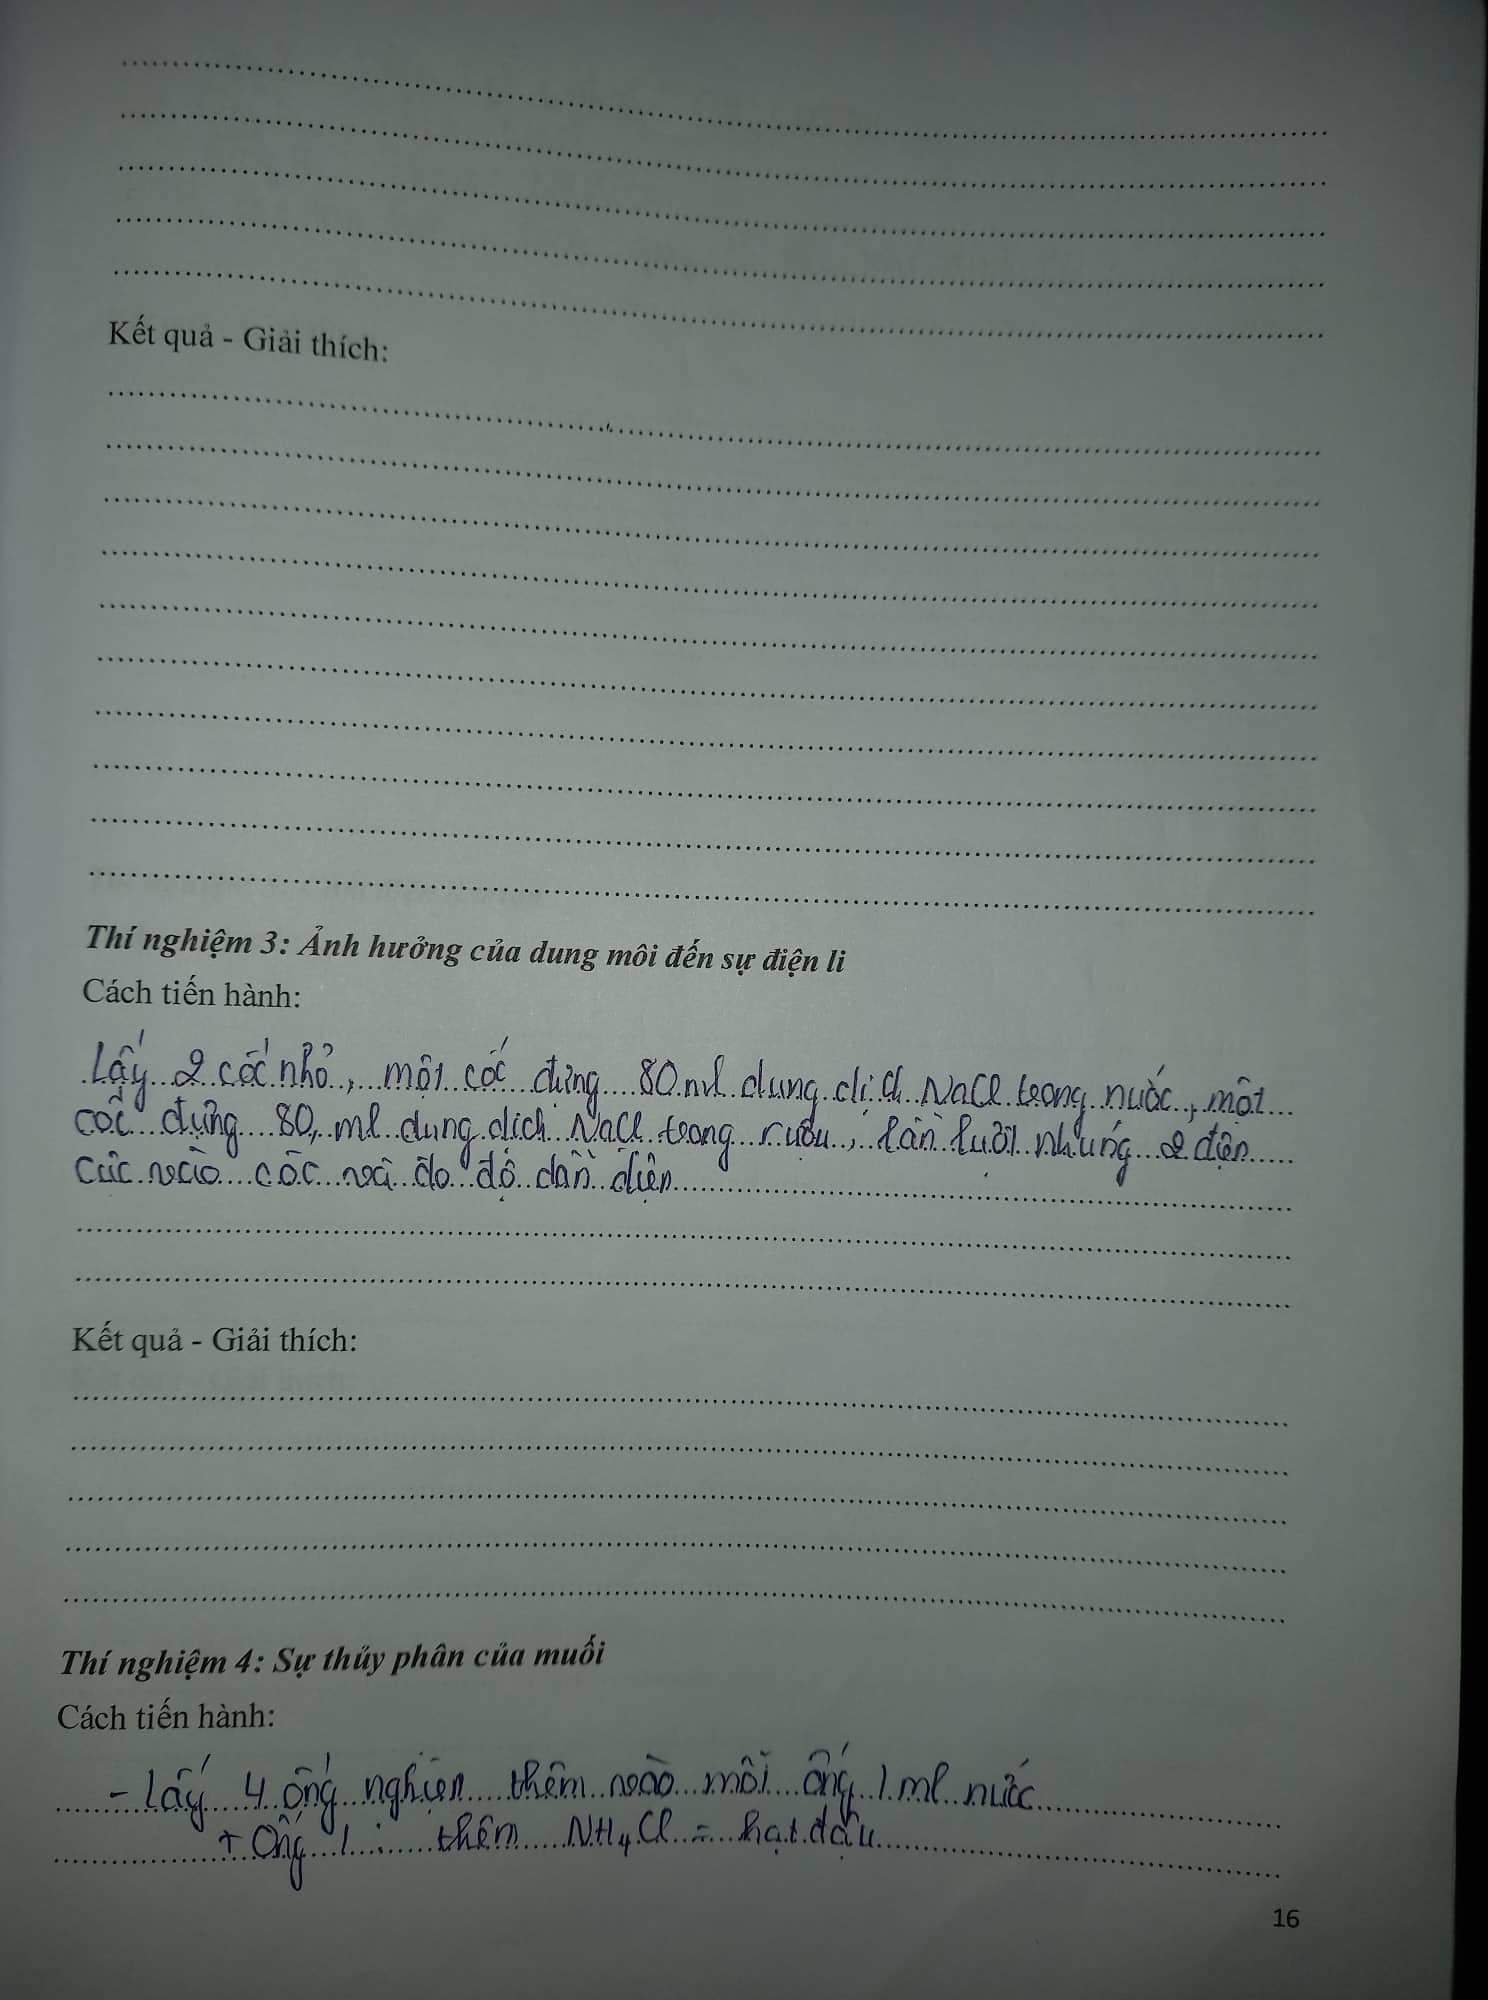 Kết quả - Giải thích:
Thí nghiệm 3: Ảnh hưởng của dung môi đến sự điện li
Cách tiến hành:
Lấy 2 cốc nhỏ, một cốc đựng 80 ml dung dịch NaCl trong nước, một
cốc đựng 80 ml dung dịch NaCl trong rượu, lần lượt nhúng 2 điện
cực vào cốc và đo độ dẫn điện
Kết quả - Giải thích:
Thí nghiệm 4: Sự thủy phân của muối
Cách tiến hành:
- Lấy 4 ống nghiệm thêm vào mỗi ống 1 ml nước
+ Ống 1 : thêm NH₄Cl = hạt đậu
16